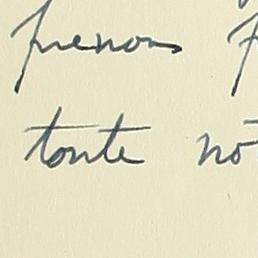 prenons
toute